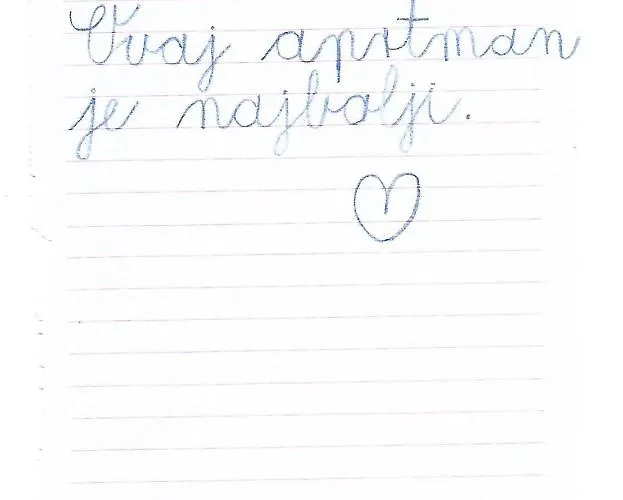 Ovaj aprtman
je najbolji.